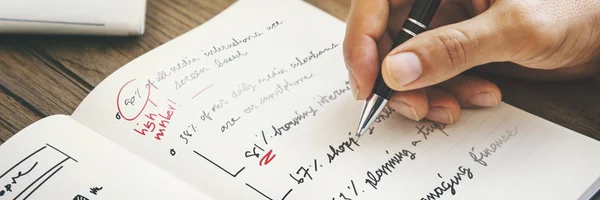 90% of all media interactions are
screen based
high
number!
38% of our daily media interactions
are on smartphone
81% browsing
67% shopping
planning a trip
managing finance